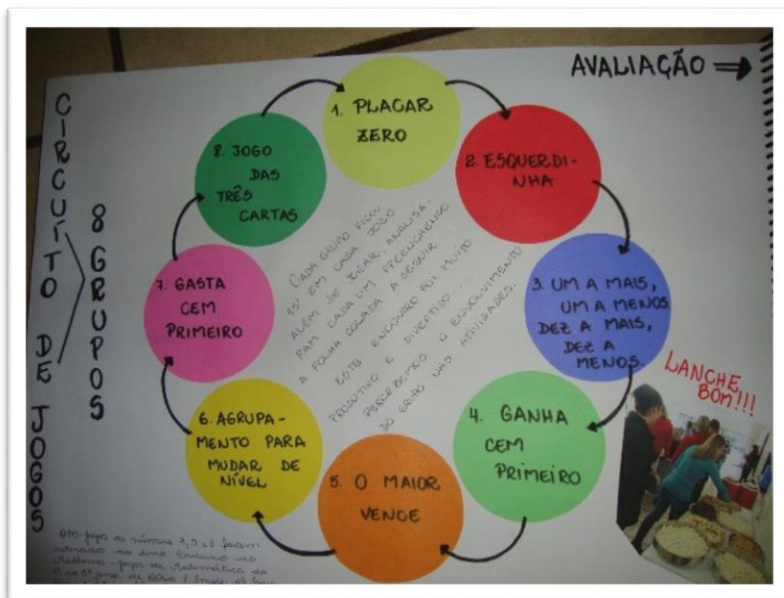 AVALIAÇÃO →
CIRCUITO DE JOGOS
8 GRUPOS
1. PLACAR
ZERO
2. ESQUERDI-
NHA
3. UM A MAIS,
UM A MENOS.
DEZ A MAIS,
DEZ A
MENOS.
4. GANHA
CEM
PRIMEIRO
5. O MAIOR
VENCE
6. AGRUPA-
MENTO PARA
MUDAR DE
NÍVEL
7. GASTA
CEM
PRIMEIRO
8. JOGO
DAS
TRÊS
CARTAS
CADA GRUPO FICOU
15' EM CADA JOGO
ALÉM DE JOGAR, ANALISA-
RAM CADA UM PREENCHENDO
A FOLHA COLADA A SEGUIR.
ESTE ENCONTRO FOI MUITO
PRODUTIVO E DIVERTIDO...
PERCEBEMOS O ENVOLVIMENTO
DO GRUPO NAS ATIVIDADES.
LANCHE
BOM!!!
jogos de número 3, 5 e 8 foram
retirados do livro Cadernos do
Mathema - jogos de Matemática do
1º ao 5º ano, de Kátia